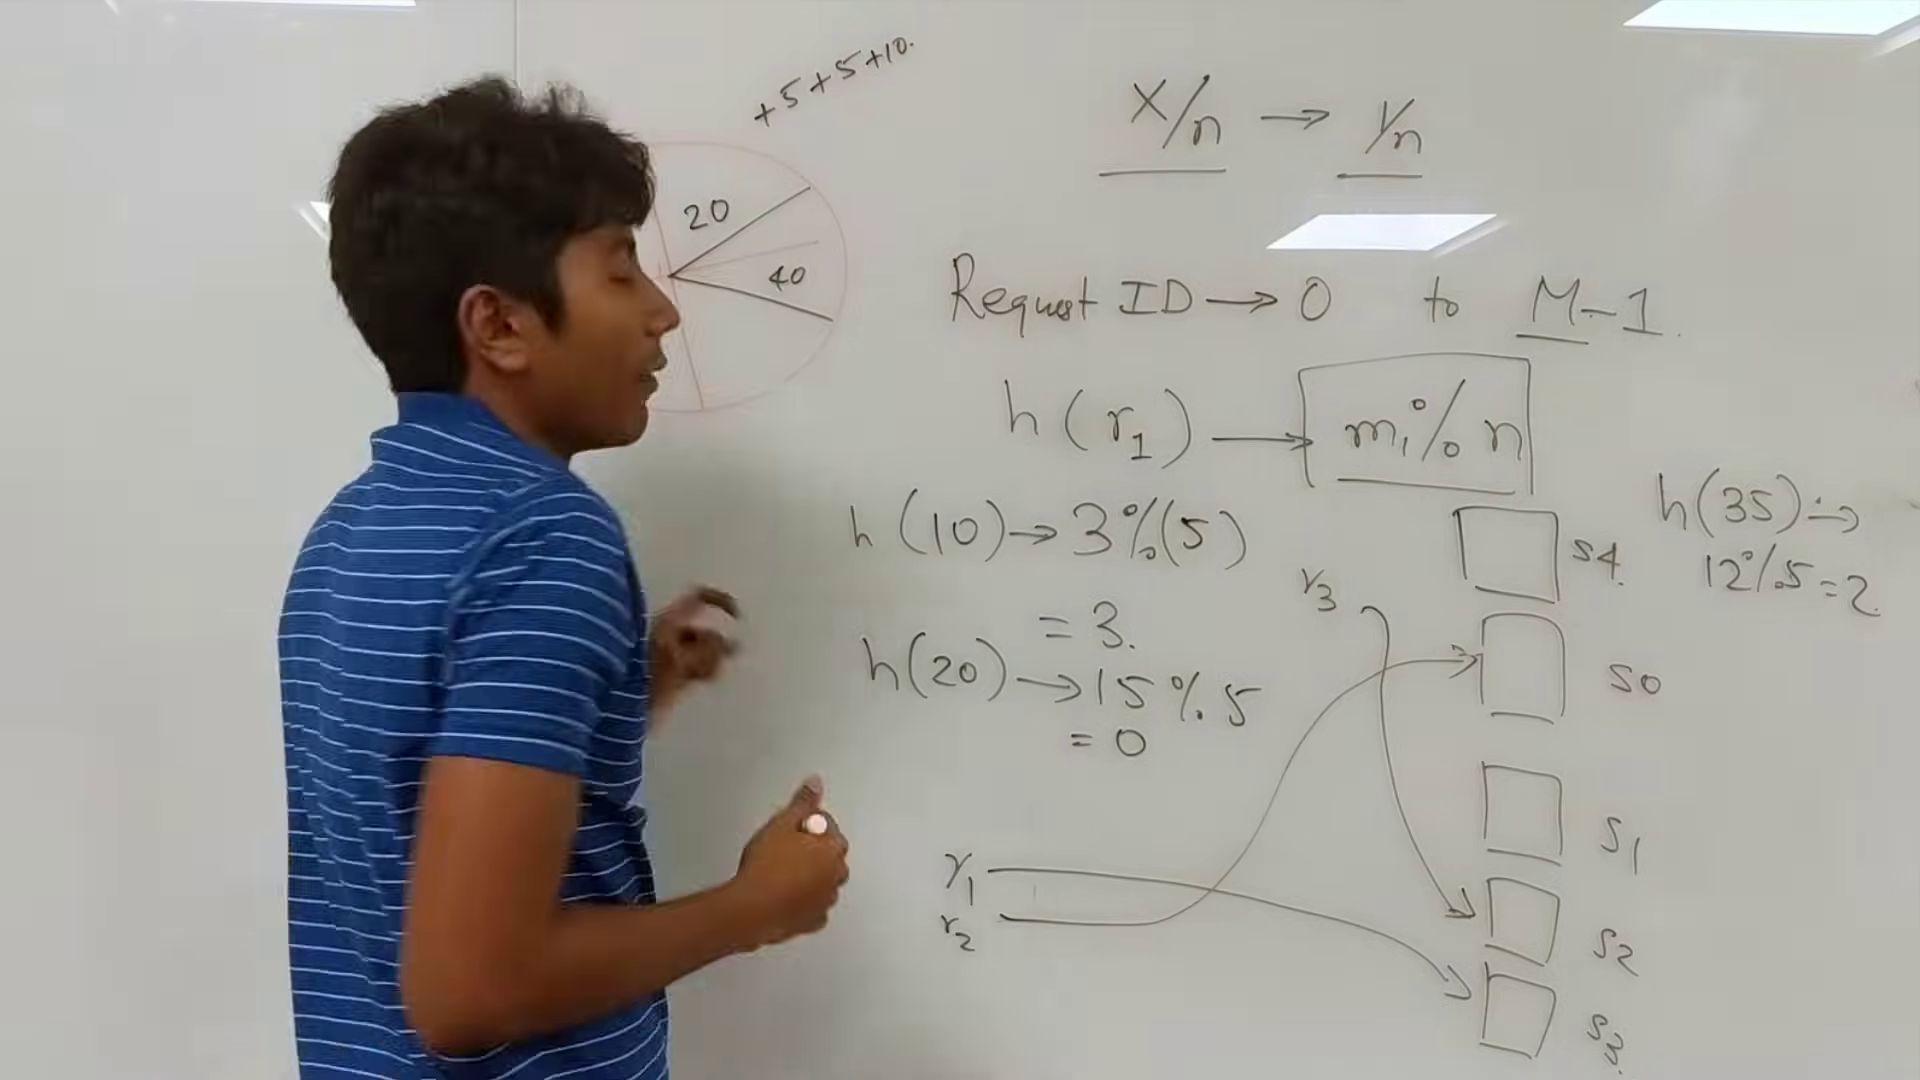 +5+5+10.
20
40
X/n → 1/n
Request ID → 0 to M-1.
h(r1) → m1 % n
h(10) → 3%(5)
= 3.
h(20) → 15 % 5
= 0
h(35) →
12%5=2.
r3
S4.
S0
S1
r1
r2
S2
S3.